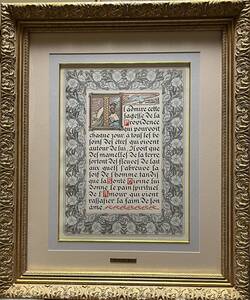 J'admire cette
sagesse de la
Providence
qui pourvoit
chaque jour à tous les be
soins des êtres qui vivent
autour de lui. Il voit que
des mamelles de la terre
sortent des fleuves de lait
aux quels s'abreuve la
soif de l'homme tandis
que la Bonté Divine lui
donne le pain spirituel
de l'Amour qui vient
rassasier la faim de son
âme